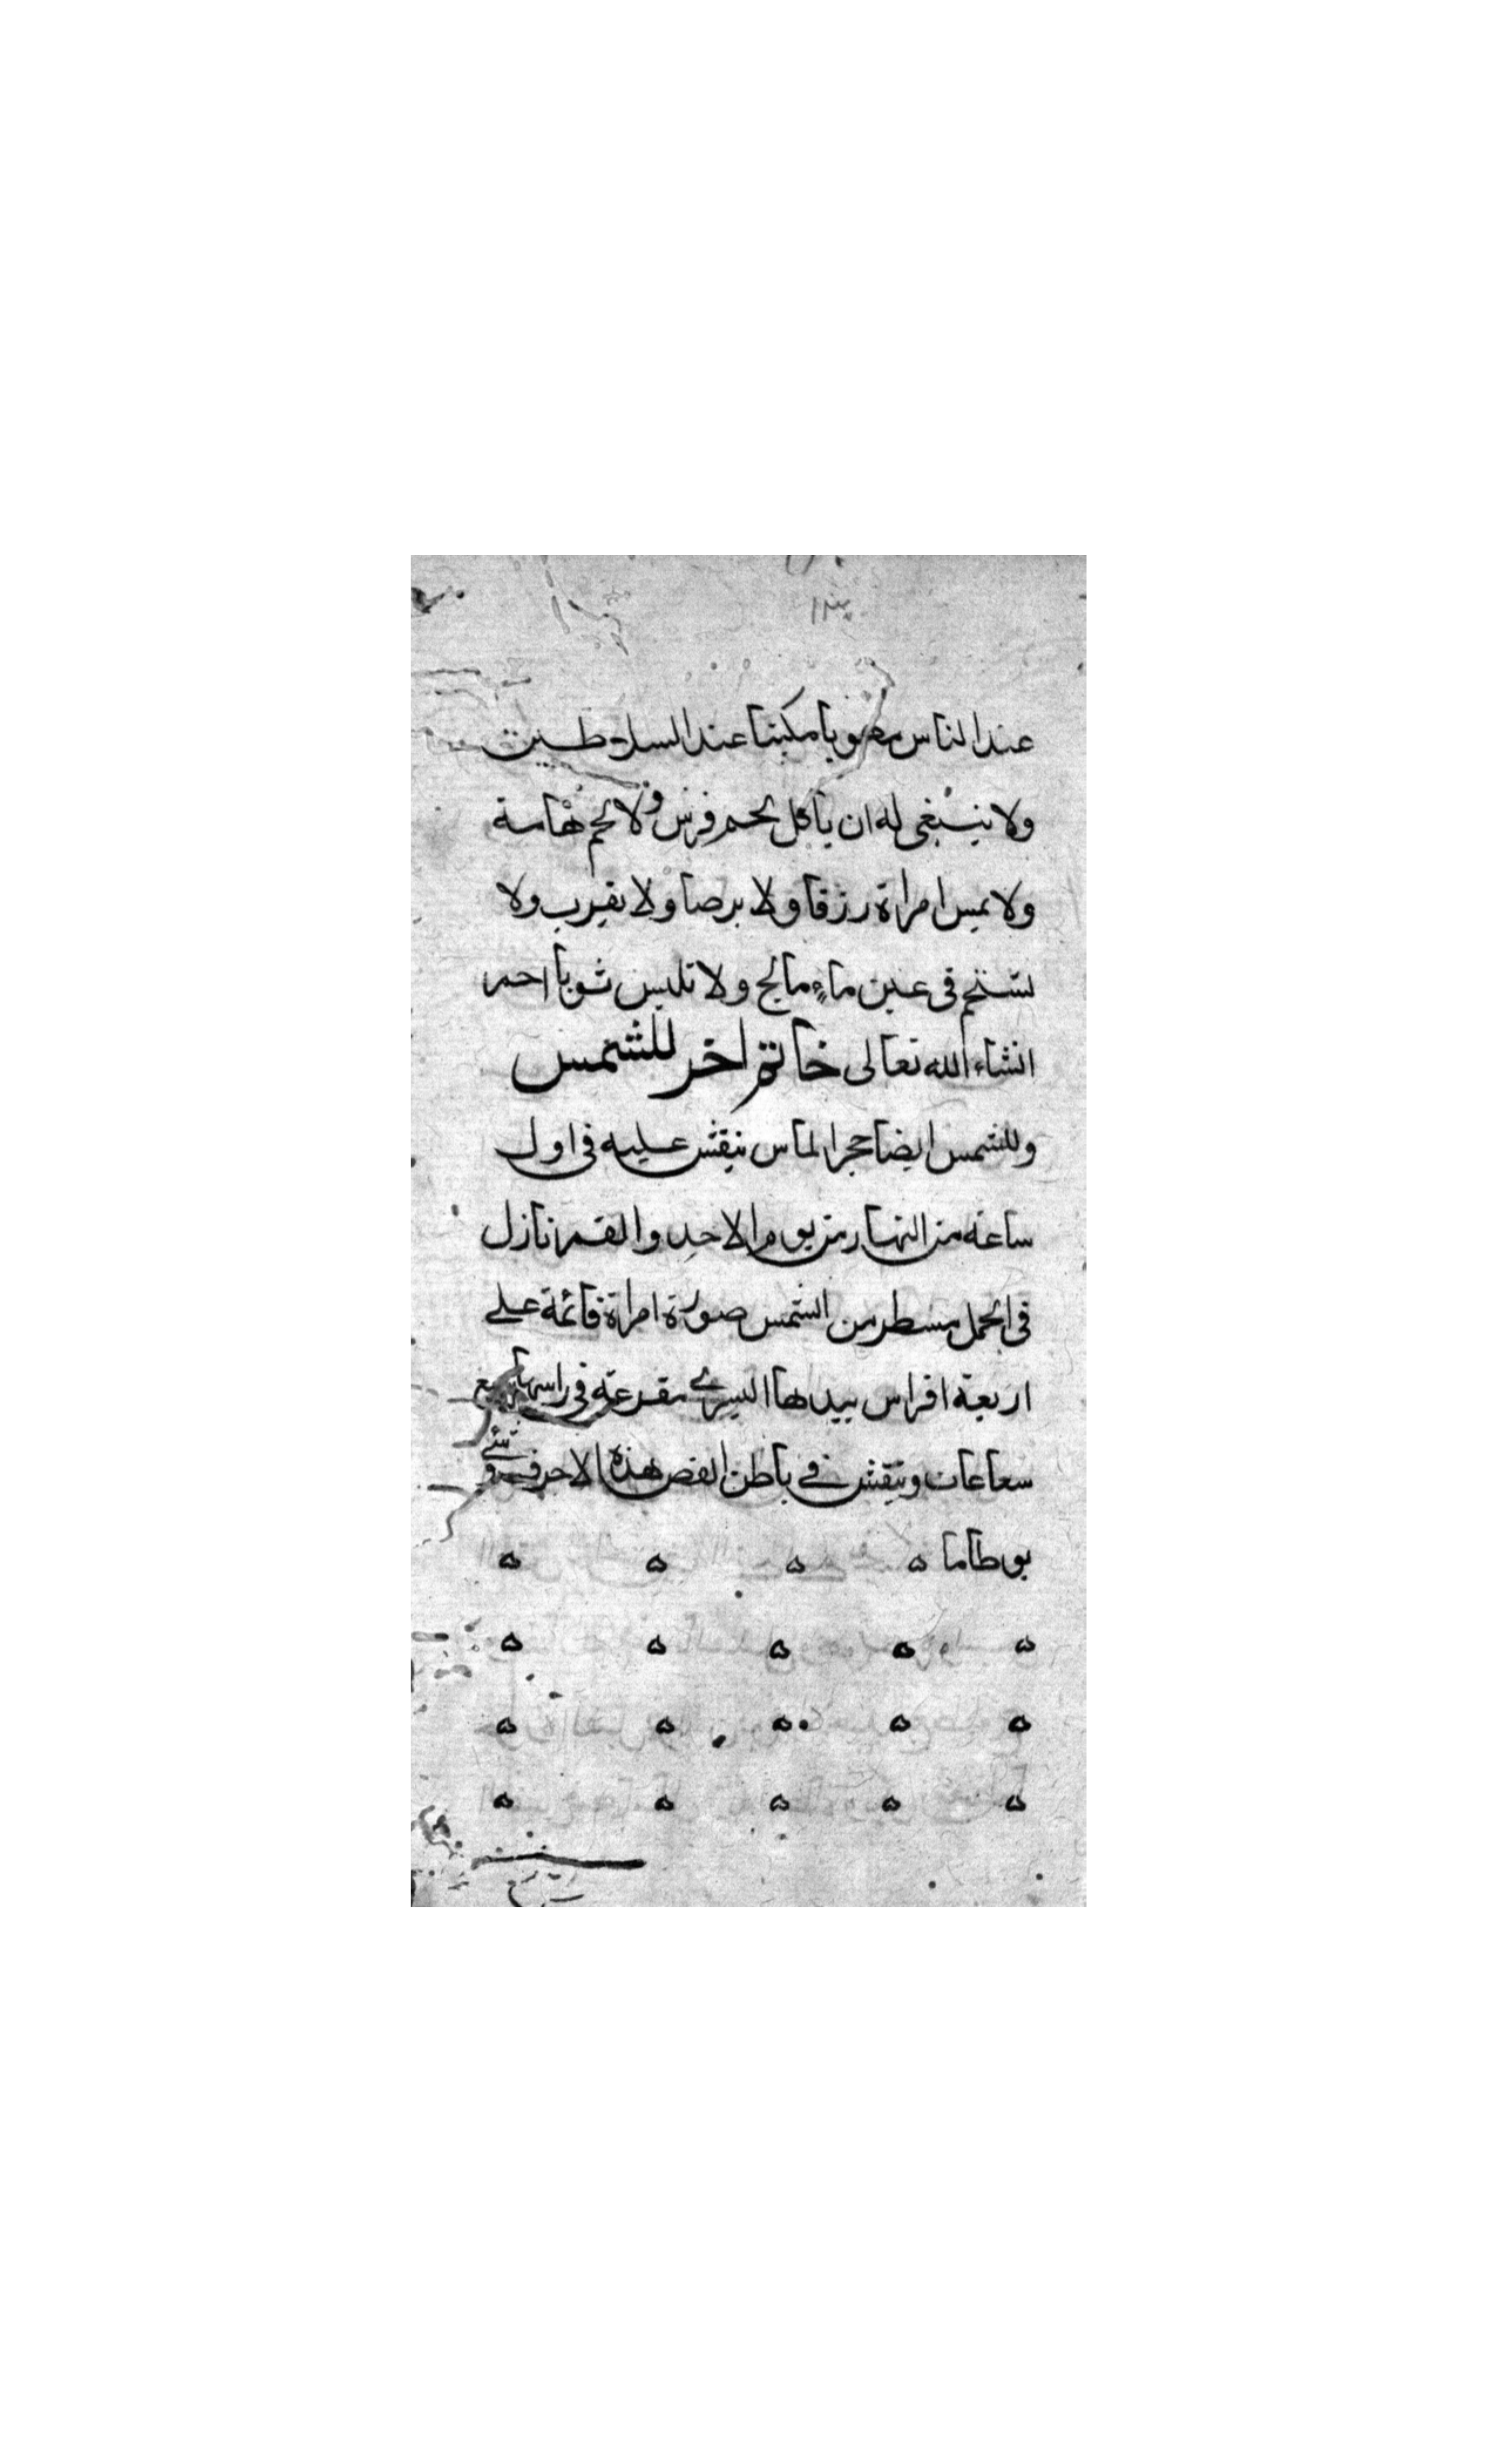 عند الناس مهوبا مكينا عند السلاطين
ولا ينبغى له ان ياكل لحم فرس ولا لحم هامة
ولا يمس امراة زرقا ولا برصا ولا يقرب ولا
يستحم فى عين ماء مالح ولا تلبس ثوبا احمر
انشاء الله تعالى خاتم اخر للشمس
وللشمس ايضا حجر الماس ينقش عليه فى اول
ساعة من النهار من يوم الاحد والقمر نازل
فى الحمل مسطر من الشمس صورة امراة قائمة على
اربعة افراس بيدها اليسرى مقرعة فى راسها سبع
سعاعات وينقش فى باطن الفص هذه الاحرف
بوطاما ه ه ه ه
ه ه ه ه ه
ه ه ه ه ه
ه ه ه ه ه